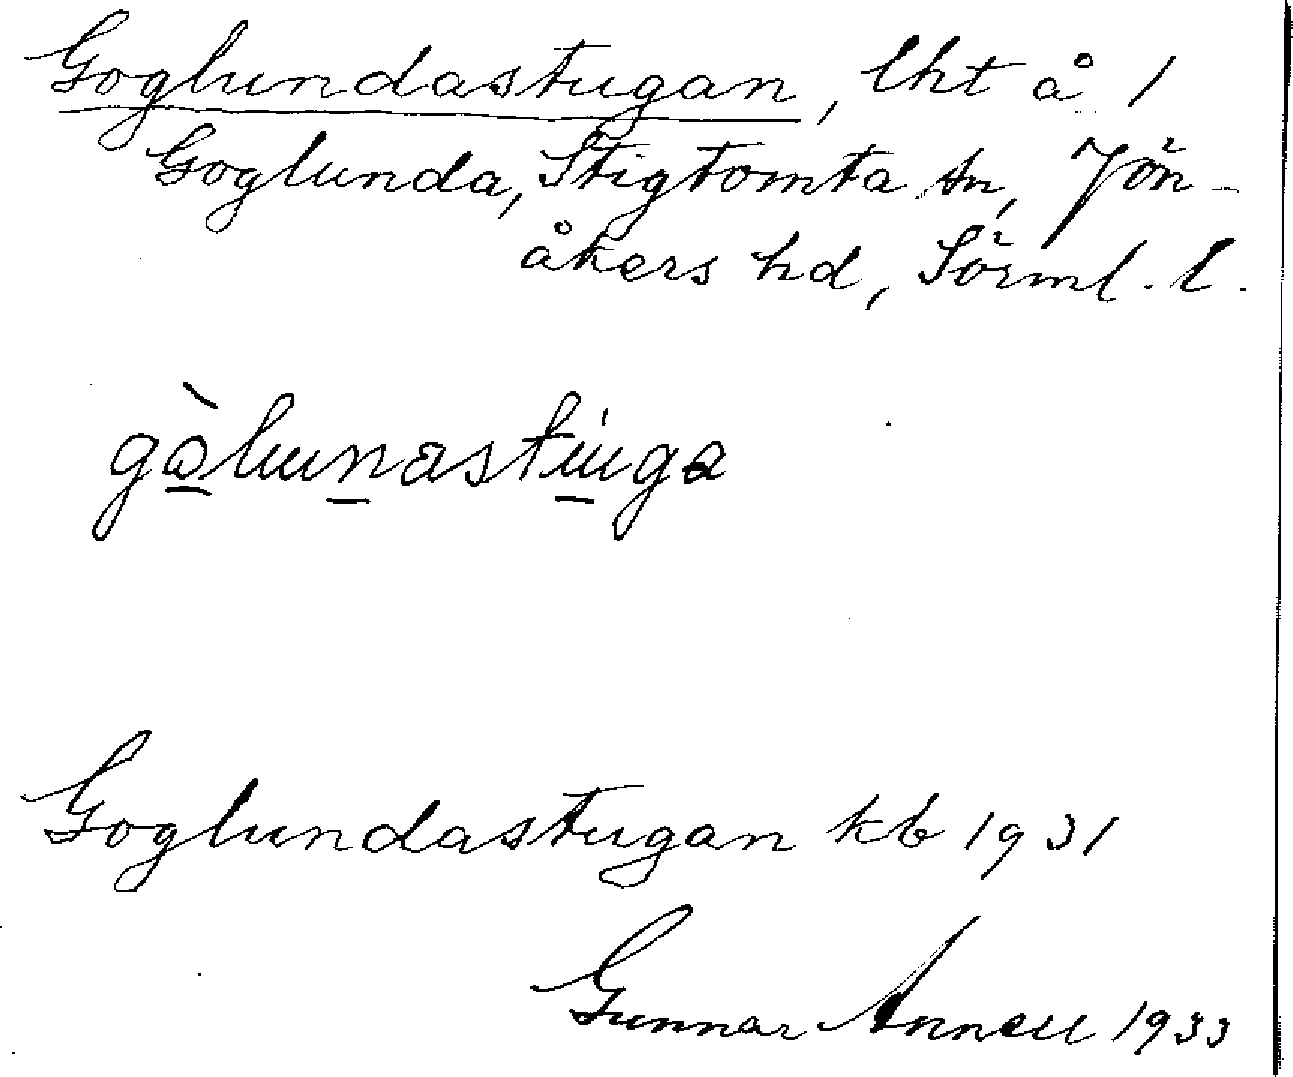 Goglundastugan, lht å 1
Goglunda, Stigtomta sn, Jön-
åkers hd, Sörml. l.
gòlunastúga
Goglundastugan kb 1931
Gunnar Annell 1933